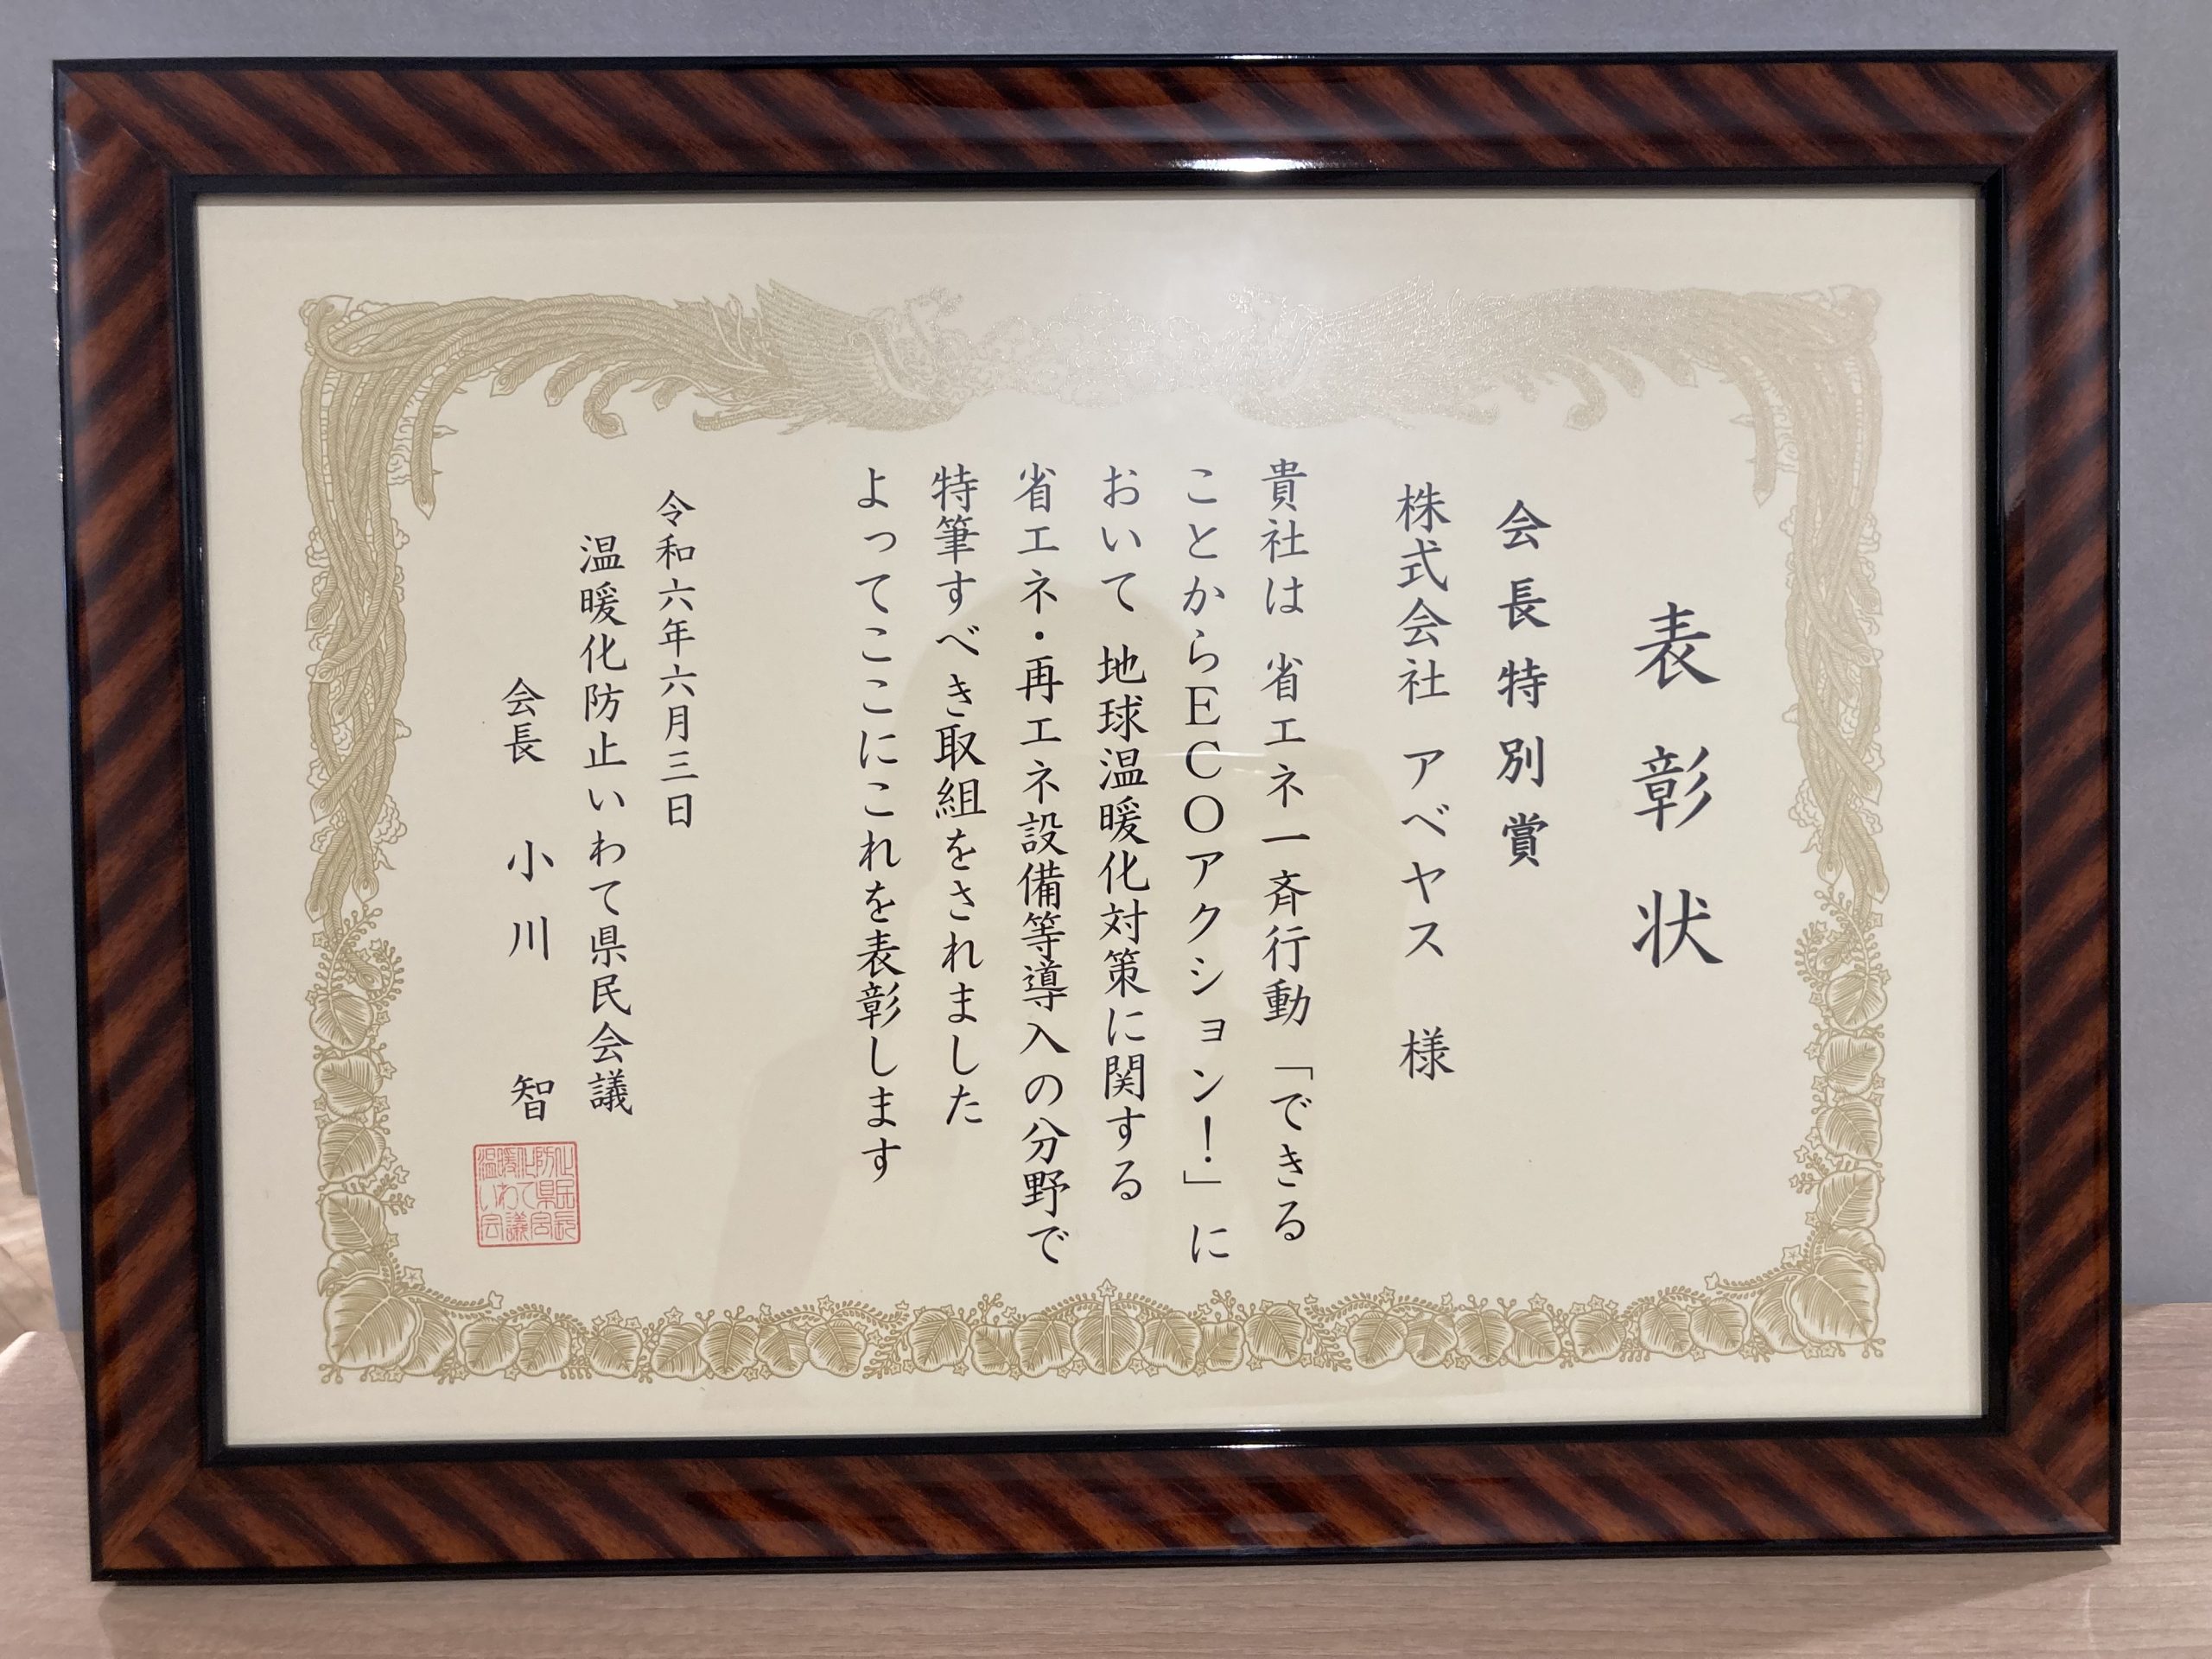 表彰状
会長特別賞
株式会社 アベヤス 様
貴社は 省エネ一斉行動「できる
ことからECOアクション!」に
おいて 地球温暖化対策に関する
省エネ・再エネ設備等導入の分野で
特筆すべき取組をされました
よってここにこれを表彰します
令和六年六月三日
温暖化防止いわて県民会議
会長 小川 智